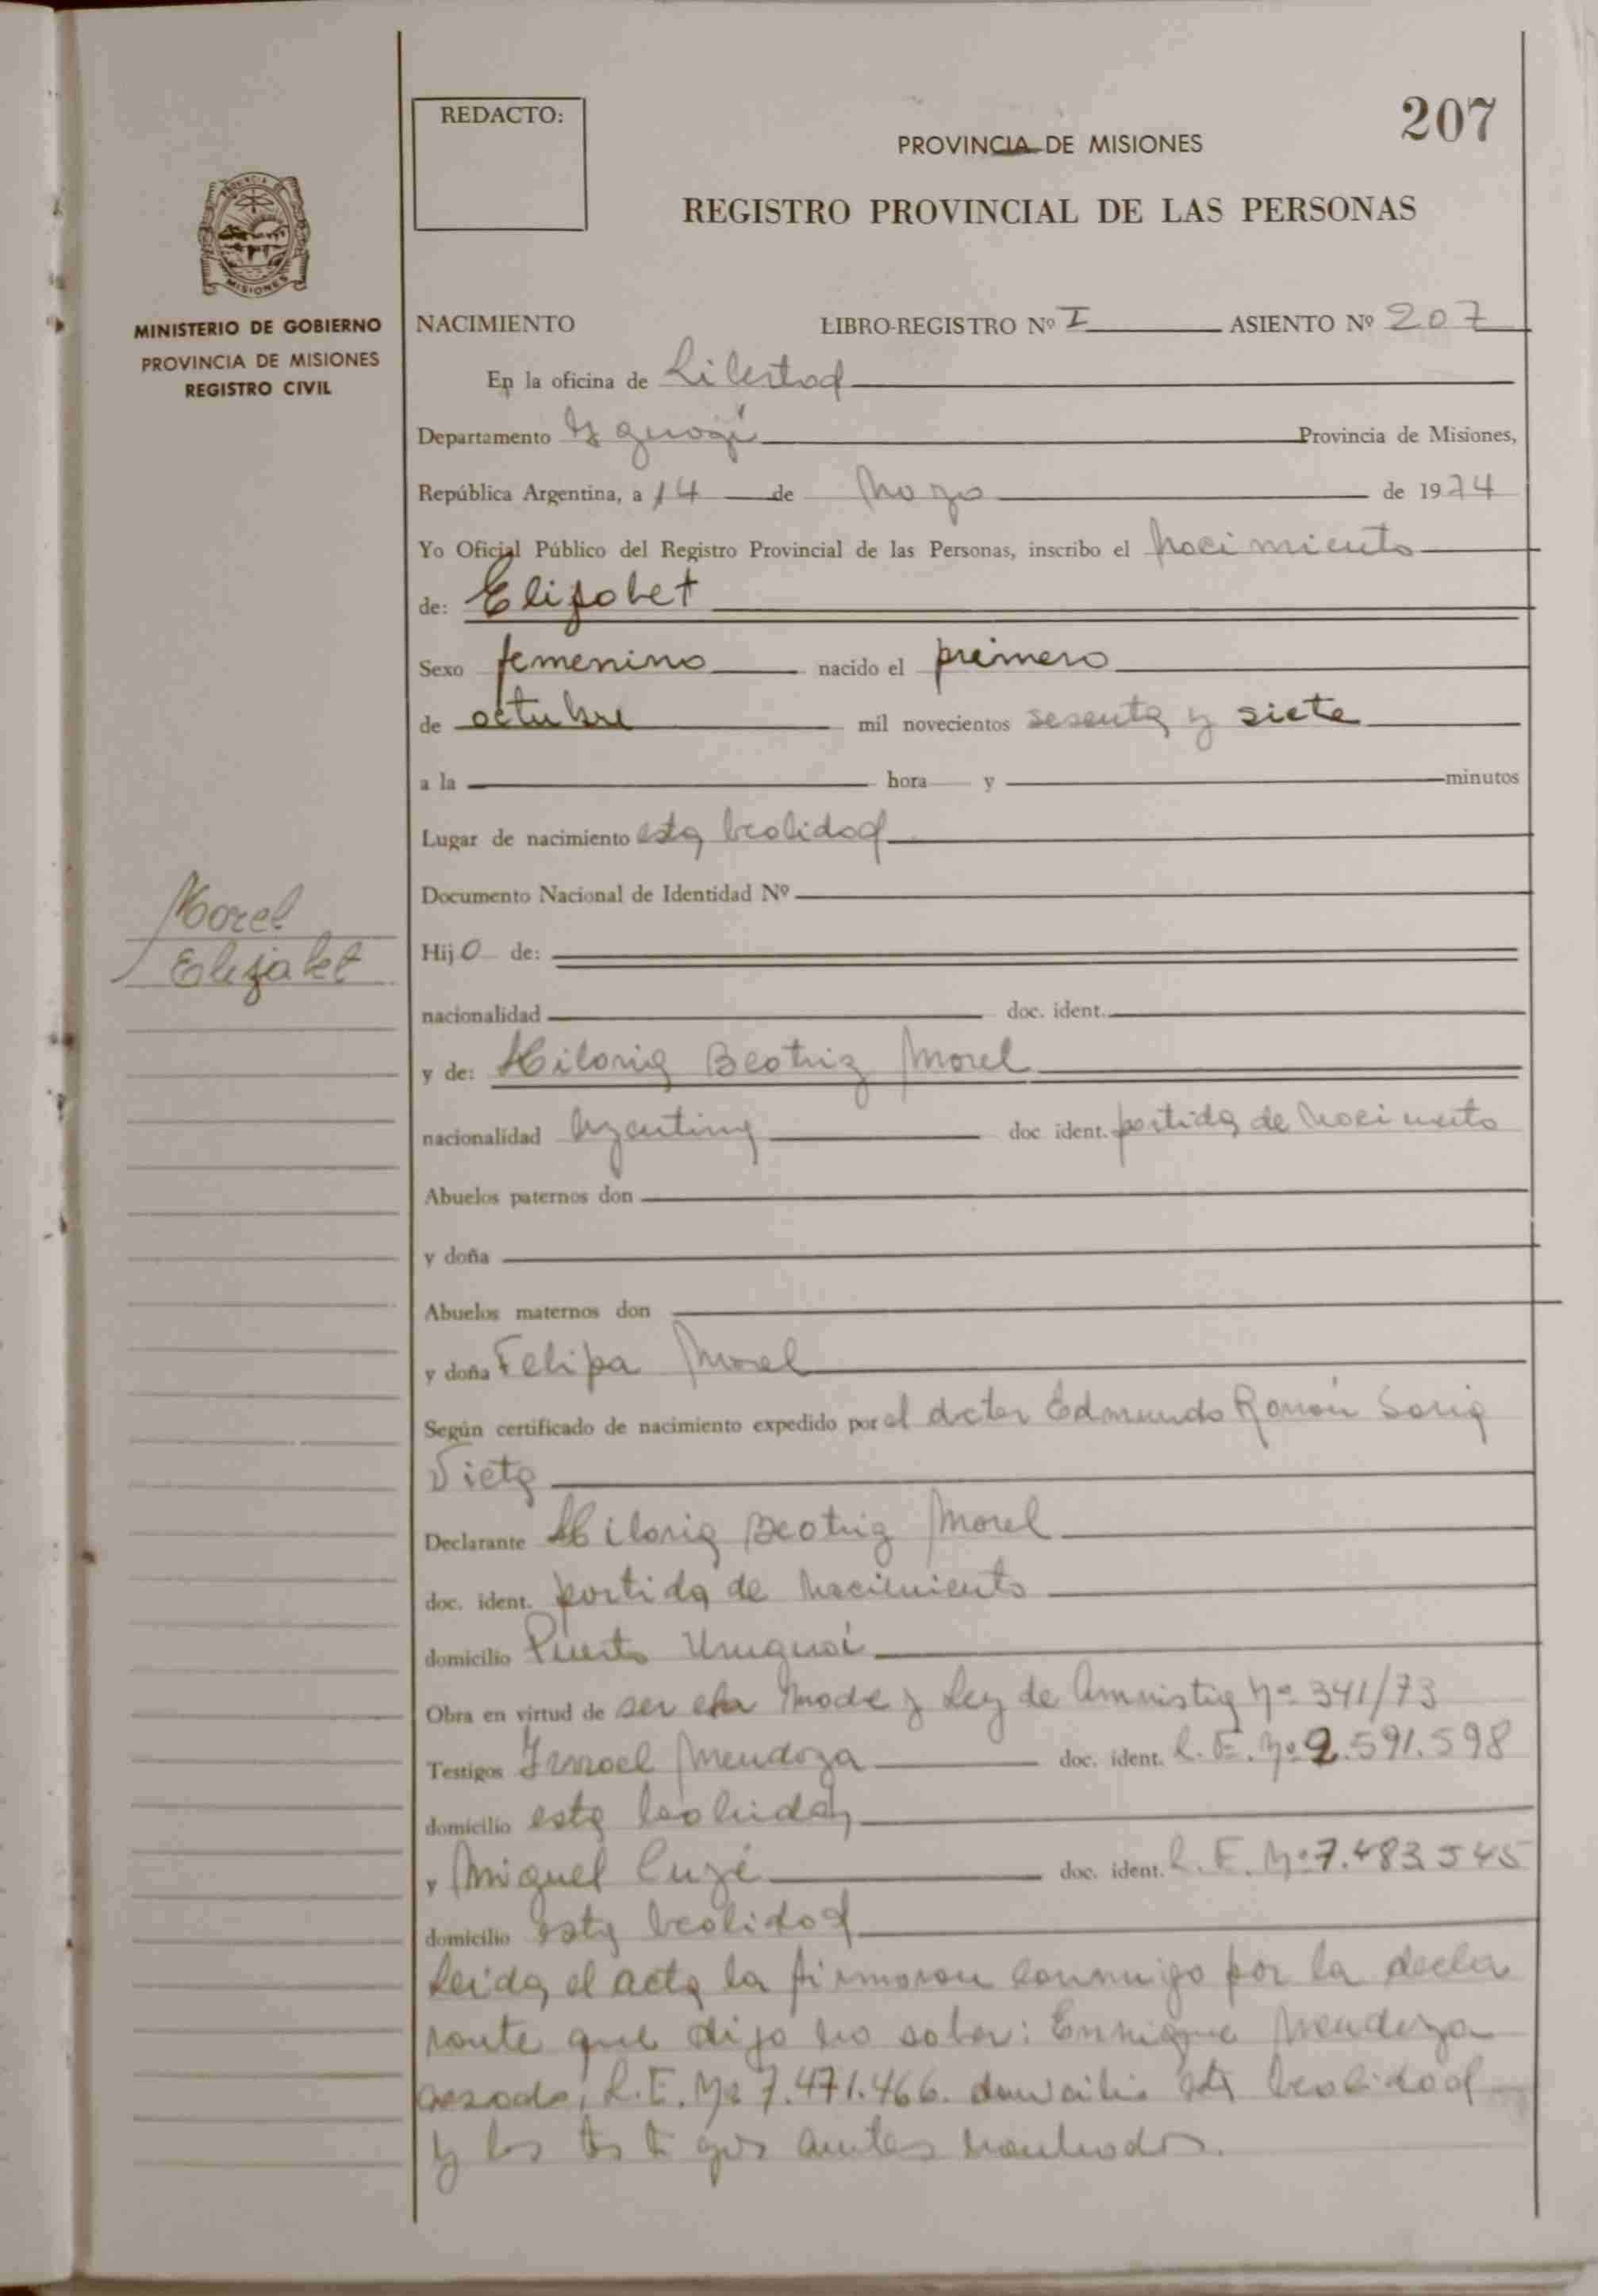 207
REDACTO:
PROVINCIA DE MISIONES
REGISTRO PROVINCIAL DE LAS PERSONAS
PROVINCIA DE
MISIONES
MINISTERIO DE GOBIERNO
PROVINCIA DE MISIONES
REGISTRO CIVIL
NACIMIENTO LIBRO-REGISTRO Nº I ASIENTO Nº 207
En la oficina de Libertad
Departamento Iguazú Provincia de Misiones,
República Argentina, a 14 de Mayo de 1974
Yo Oficial Público del Registro Provincial de las Personas, inscribo el nacimiento
de: Elizabet
Sexo femenino nacido el primero
de octubre mil novecientos sesenta y siete
a la hora y minutos
Lugar de nacimiento esta localidad
Documento Nacional de Identidad Nº
Morel
Elizabet
Hija de:
nacionalidad doc. ident.
y de: Hilaria Beatriz Morel
nacionalidad Argentina doc ident. partida de nacimiento
Abuelos paternos don
y doña
Abuelos maternos don
y doña Felipa Morel
Según certificado de nacimiento expedido por el doctor Edmundo Ramón Soria
Vieta
Declarante Hilaria Beatriz Morel
doc. ident. partida de nacimiento
domicilio Puerto Uruguaí
Obra en virtud de ser ella madre y Ley de Amnistia Nº 341/73
Testigos Ismael Mendoza doc. ident. L. E. Nº 2.591.598
domicilio esta localidad
y Miguel doc. ident. L. E. Nº 7.483.545
domicilio esta localidad
Leida el acta la firmaron conmigo por la decla
rante que dijo no saber: Enrique Mendoza
casado, L. E. Nº 7.471.466. domicilio esta localidad
y los testigos antes nombrados.